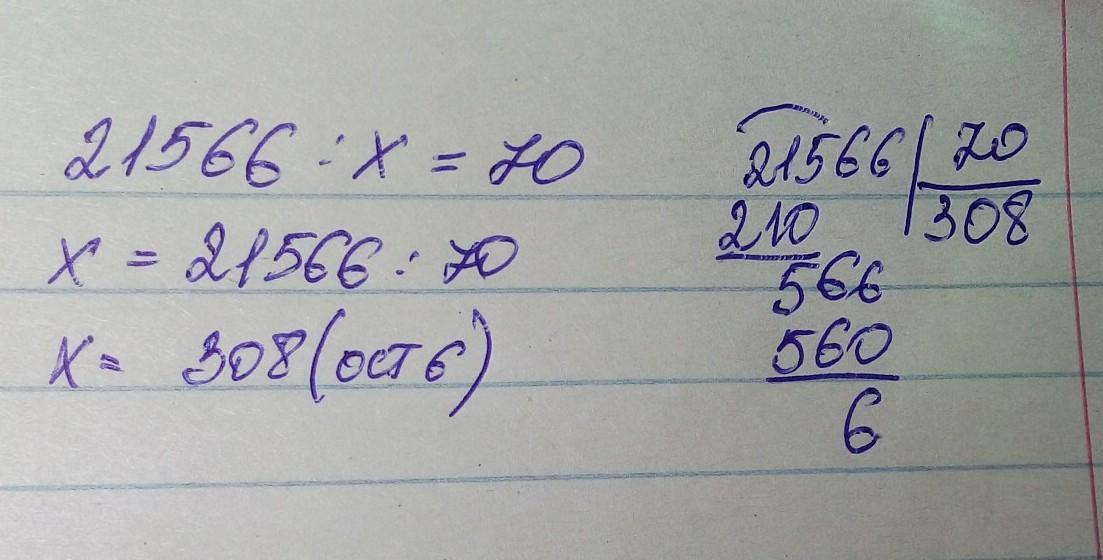 21566 : x = 70
x = 21566 : 70
x = 308 (ост 6)
21566 | 70
210 | 308
566
560
6